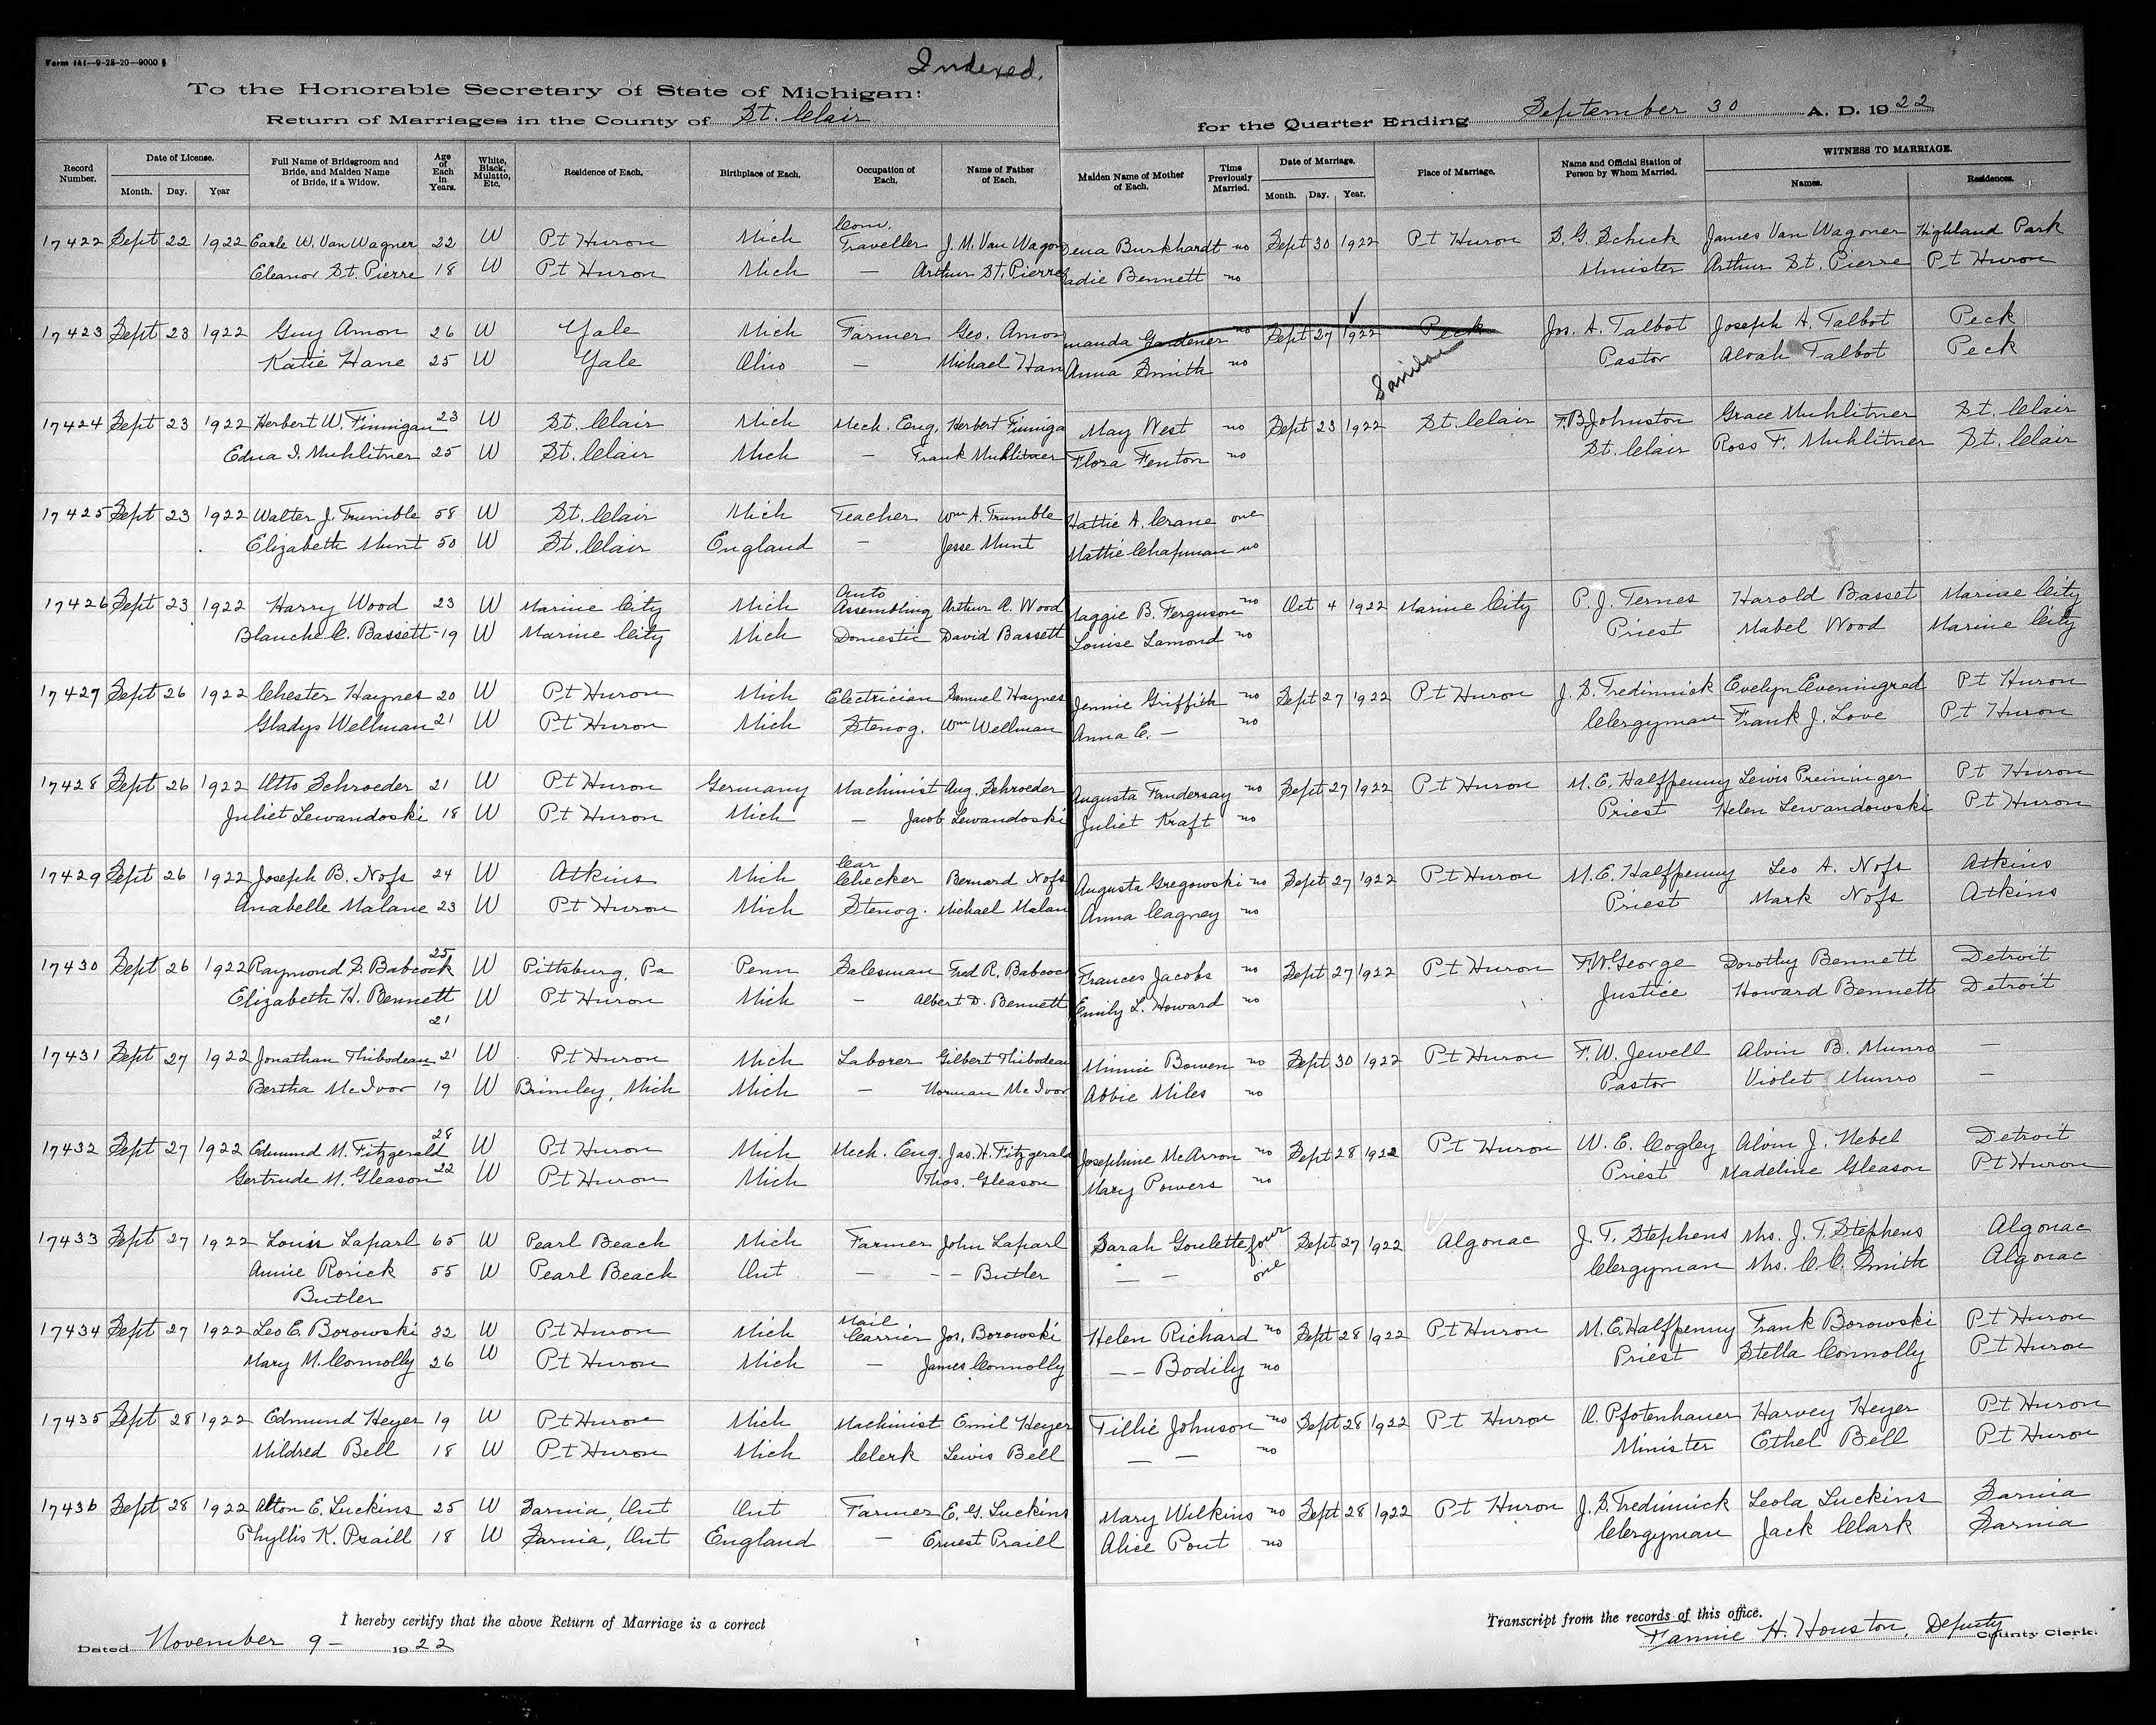 Form 141—9-28-20—9000
Indexed.
To the Honorable Secretary of State of Michigan:
Return of Marriages in the County of St. Clair for the Quarter Ending September 30 A. D. 1922
Record Number. Date of License. Full Name of Bridegroom and Bride, and Maiden Name of Bride, if a Widow. Age of Each in Years. White, Black, Mulatto, Etc. Residence of Each. Birthplace of Each. Occupation of Each. Name of Father of Each. Maiden Name of Mother of Each. Time Previously Married. Date of Marriage. Place of Marriage. Name and Official Station of Person by Whom Married. WITNESS TO MARRIAGE.
Month. Day. Year Month. Day. Year. Names. Residences.
17422 Sept 22 1922 Earle W. Van Wagner 22 W Pt Huron Mich Com. Traveller J. M. Van Wagon Dena Burkhardt no Sept 30 1922 Pt Huron S. G. Schick James Van Wagoner Highland Park
Eleanor St. Pierre 18 W Pt Huron Mich — Arthur St. Pierre Sadie Bennett no Minister Arthur St. Pierre Pt Huron
17423 Sept 23 1922 Guy Amon 26 W Yale Mich Farmer Geo. Amon manda Gardener no Sept 27 1922 Peck Jos. A. Talbot Joseph A. Talbot Peck
Katie Hane 25 W Yale Ohio — Michael Han Anna Smith no Sanilac Pastor Alvah Talbot Peck
17424 Sept 23 1922 Herbert W. Finnigan 23 W St. Clair Mich Mech. Eng. Herbert Finniga May West no Sept 23 1922 St. Clair F. B. Johnston Grace Muhlitner St. Clair
Edna I. Muhlitner 25 W St. Clair Mich — Frank Muhlitner Flora Fenton no St. Clair Ross F. Muhlitner St. Clair
17425 Sept 23 1922 Walter J. Trumble 58 W St. Clair Mich Teacher Wm A. Trumble Hattie A. Crane one
Elizabeth Munt 50 W St. Clair England — Jesse Munt Mattie Chapman no
17426 Sept 23 1922 Harry Wood 23 W Marine City Mich Auto Assembling Arthur R. Wood Maggie B. Ferguson no Oct 4 1922 Marine City P. J. Ternes Harold Basset Marine City
Blanche C. Bassett 19 W Marine City Mich Domestic David Bassett Louise Lamond no Priest Mabel Wood Marine City
17427 Sept 26 1922 Chester Haynes 20 W Pt Huron Mich Electrician Samuel Haynes Jennie Griffith no Sept 27 1922 Pt Huron J. S. Tredinnick Evelyn Eveningred Pt Huron
Gladys Wellman 21 W Pt Huron Mich Stenog. Wm Wellman Anna E. — no Clergyman Frank J. Love Pt Huron
17428 Sept 26 1922 Otto Schroeder 21 W Pt Huron Germany Machinist Aug. Schroeder Augusta Fandersay no Sept 27 1922 Pt Huron M. E. Halfpenny Lewis Preininger Pt Huron
Juliet Lewandoski 18 W Pt Huron Mich — Jacob Lewandoski Juliet Kraft no Priest Helen Lewandowski Pt Huron
17429 Sept 26 1922 Joseph B. Nofs 24 W Atkins Mich Car Checker Bernard Nofs Augusta Gregowski no Sept 27 1922 Pt Huron M. E. Halfpenny Leo A. Nofs Atkins
Anabelle Malane 23 W Pt Huron Mich Stenog. Michael Malan Anna Cagney no Priest Mark Nofs Atkins
17430 Sept 26 1922 Raymond S. Babcock 25 W Pittsburg, Pa Penn Salesman Fred R. Babcoc Frances Jacobs no Sept 27 1922 Pt Huron F. W. George Dorothy Bennett Detroit
Elizabeth H. Bennett 21 W Pt Huron Mich — Albert D. Bennett Emily L. Howard no Justice Howard Bennett Detroit
17431 Sept 27 1922 Jonathan Thibodeau 21 W Pt Huron Mich Laborer Gilbert Thibodeau Minnie Bowen no Sept 30 1922 Pt Huron F. W. Jewell Alvin B. Munro —
Bertha McIvor 19 W Brimley, Mich Mich — Norman McIvor Abbie Miles no Pastor Violet Munro —
17432 Sept 27 1922 Edmund M. Fitzgerald 28 W Pt Huron Mich Mech. Eng. Jas. H. Fitzgerald Josephine McArron no Sept 28 1922 Pt Huron W. E. Cogley Alvin J. Nebel Detroit
Gertrude M. Gleason 22 W Pt Huron Mich Thos. Gleason Mary Powers no Priest Madeline Gleason Pt Huron
17433 Sept 27 1922 Louis Laparl 65 W Pearl Beach Mich Farmer John Laparl Sarah Goulette four Sept 27 1922 Algonac J. T. Stephens Mrs. J. T. Stephens Algonac
Annie Rorick 55 W Pearl Beach Ont — — — Butler — — one Clergyman Mrs. C. C. Smith Algonac
Butler
17434 Sept 27 1922 Leo E. Borowski 32 W Pt Huron Mich Mail Carrier Jos. Borowski Helen Richard no Sept 28 1922 Pt Huron M. E. Halfpenny Frank Borowski Pt Huron
Mary M. Connolly 26 W Pt Huron Mich — James Connolly — — Bodily no Priest Stella Connolly Pt Huron
17435 Sept 28 1922 Edmund Heyer 19 W Pt Huron Mich Machinist Emil Heyer Tillie Johnson no Sept 28 1922 Pt Huron O. Pfotenhauer Harvey Heyer Pt Huron
Mildred Bell 18 W Pt Huron Mich Clerk Lewis Bell — — no Minister Ethel Bell Pt Huron
17436 Sept 28 1922 Alton E. Luckins 25 W Sarnia, Ont Ont Farmer E. G. Luckins Mary Wilkins no Sept 28 1922 Pt Huron J. S. Tredinnick Leola Luckins Sarnia
Phyllis K. Praill 18 W Sarnia, Ont England — Ernest Praill Alice Pout no Clergyman Jack Clark Sarnia
I hereby certify that the above Return of Marriage is a correct Transcript from the records of this office.
Dated November 9 - 1922 Fannie H. Houston, Deputy County Clerk.